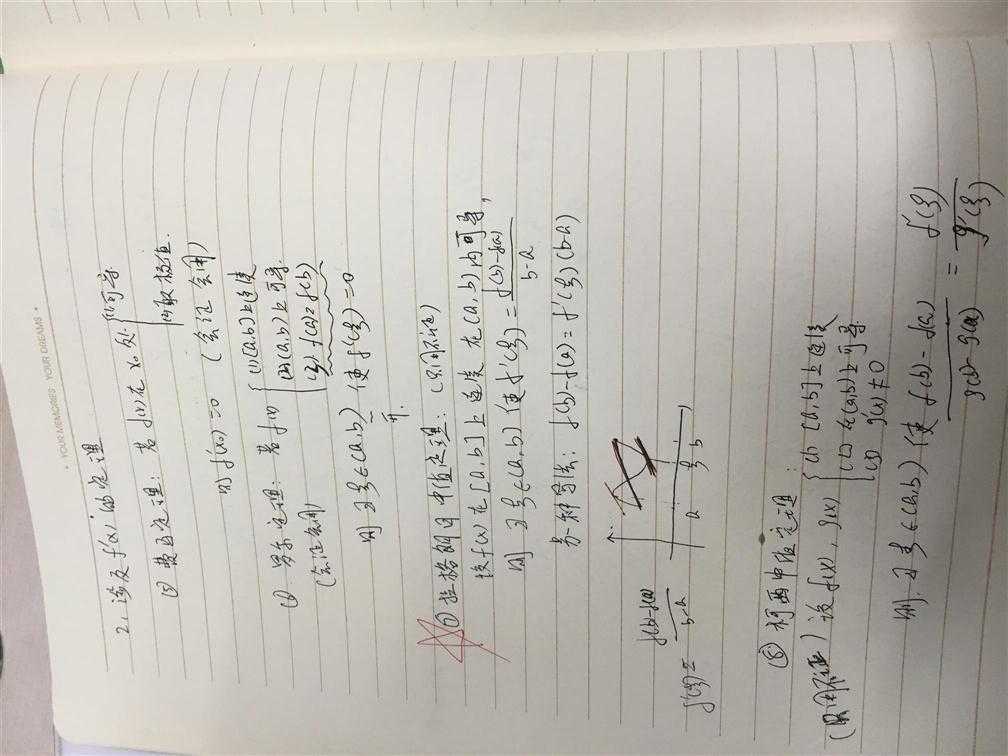 • YOUR MEMORIES YOUR DREAMS •
2. 涉及f'(x)的定理
⑤ 费马定理: 若f(x)在x₀处 { (1)可导 (2)取极值.
则 f'(x₀)=0 (会证会用)
⑥ 罗尔定理: 若f(x) { (1)[a,b]上连续 (2)(a,b)上可导. (3) f(a)=f(b)
(会证会用)
则 ∃ξ∈(a,b) 使f'(ξ)=0
⑦ 拉格朗日中值定理: (只用不证)
设f(x)在[a,b]上连续 在(a,b)内可导,
则 ∃ξ∈(a,b) 使f'(ξ)=\frac{f(b)-f(a)}{b-a}
另一种写法: f(b)-f(a)=f'(ξ)(b-a)
a ξ b
f'(ξ)=\frac{f(b)-f(a)}{b-a}
⑧ 柯西中值定理:
(只用不证) 设f(x), g(x) { (1) [a,b]上连续 (2) 在(a,b)上可导 (3) g'(x)≠0
则. ∃ξ∈(a,b) 使 \frac{f(b)-f(a)}{g(b)-g(a)} = \frac{f'(ξ)}{g'(ξ)}